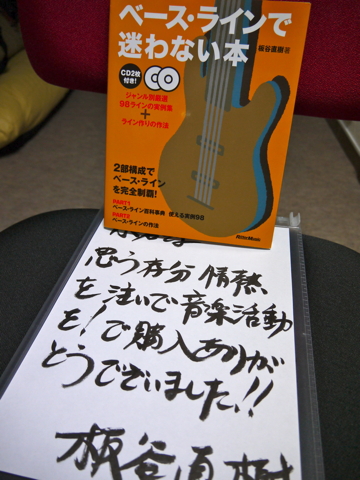 ベース・ラインで
迷わない本
板谷直樹 著
CD2枚
付き!
ジャンル別厳選
98ラインの実例集
+
ライン作りの作法
2部構成で
ベース・ライン
を完全制覇!
PART1
ベース・ライン百科事典 使える実例98
PART2
ベース・ラインの作法
RittorMusic
思う存分 情熱
を注いで音楽活動
を!ご購入ありが
とうございました!!
板谷直樹